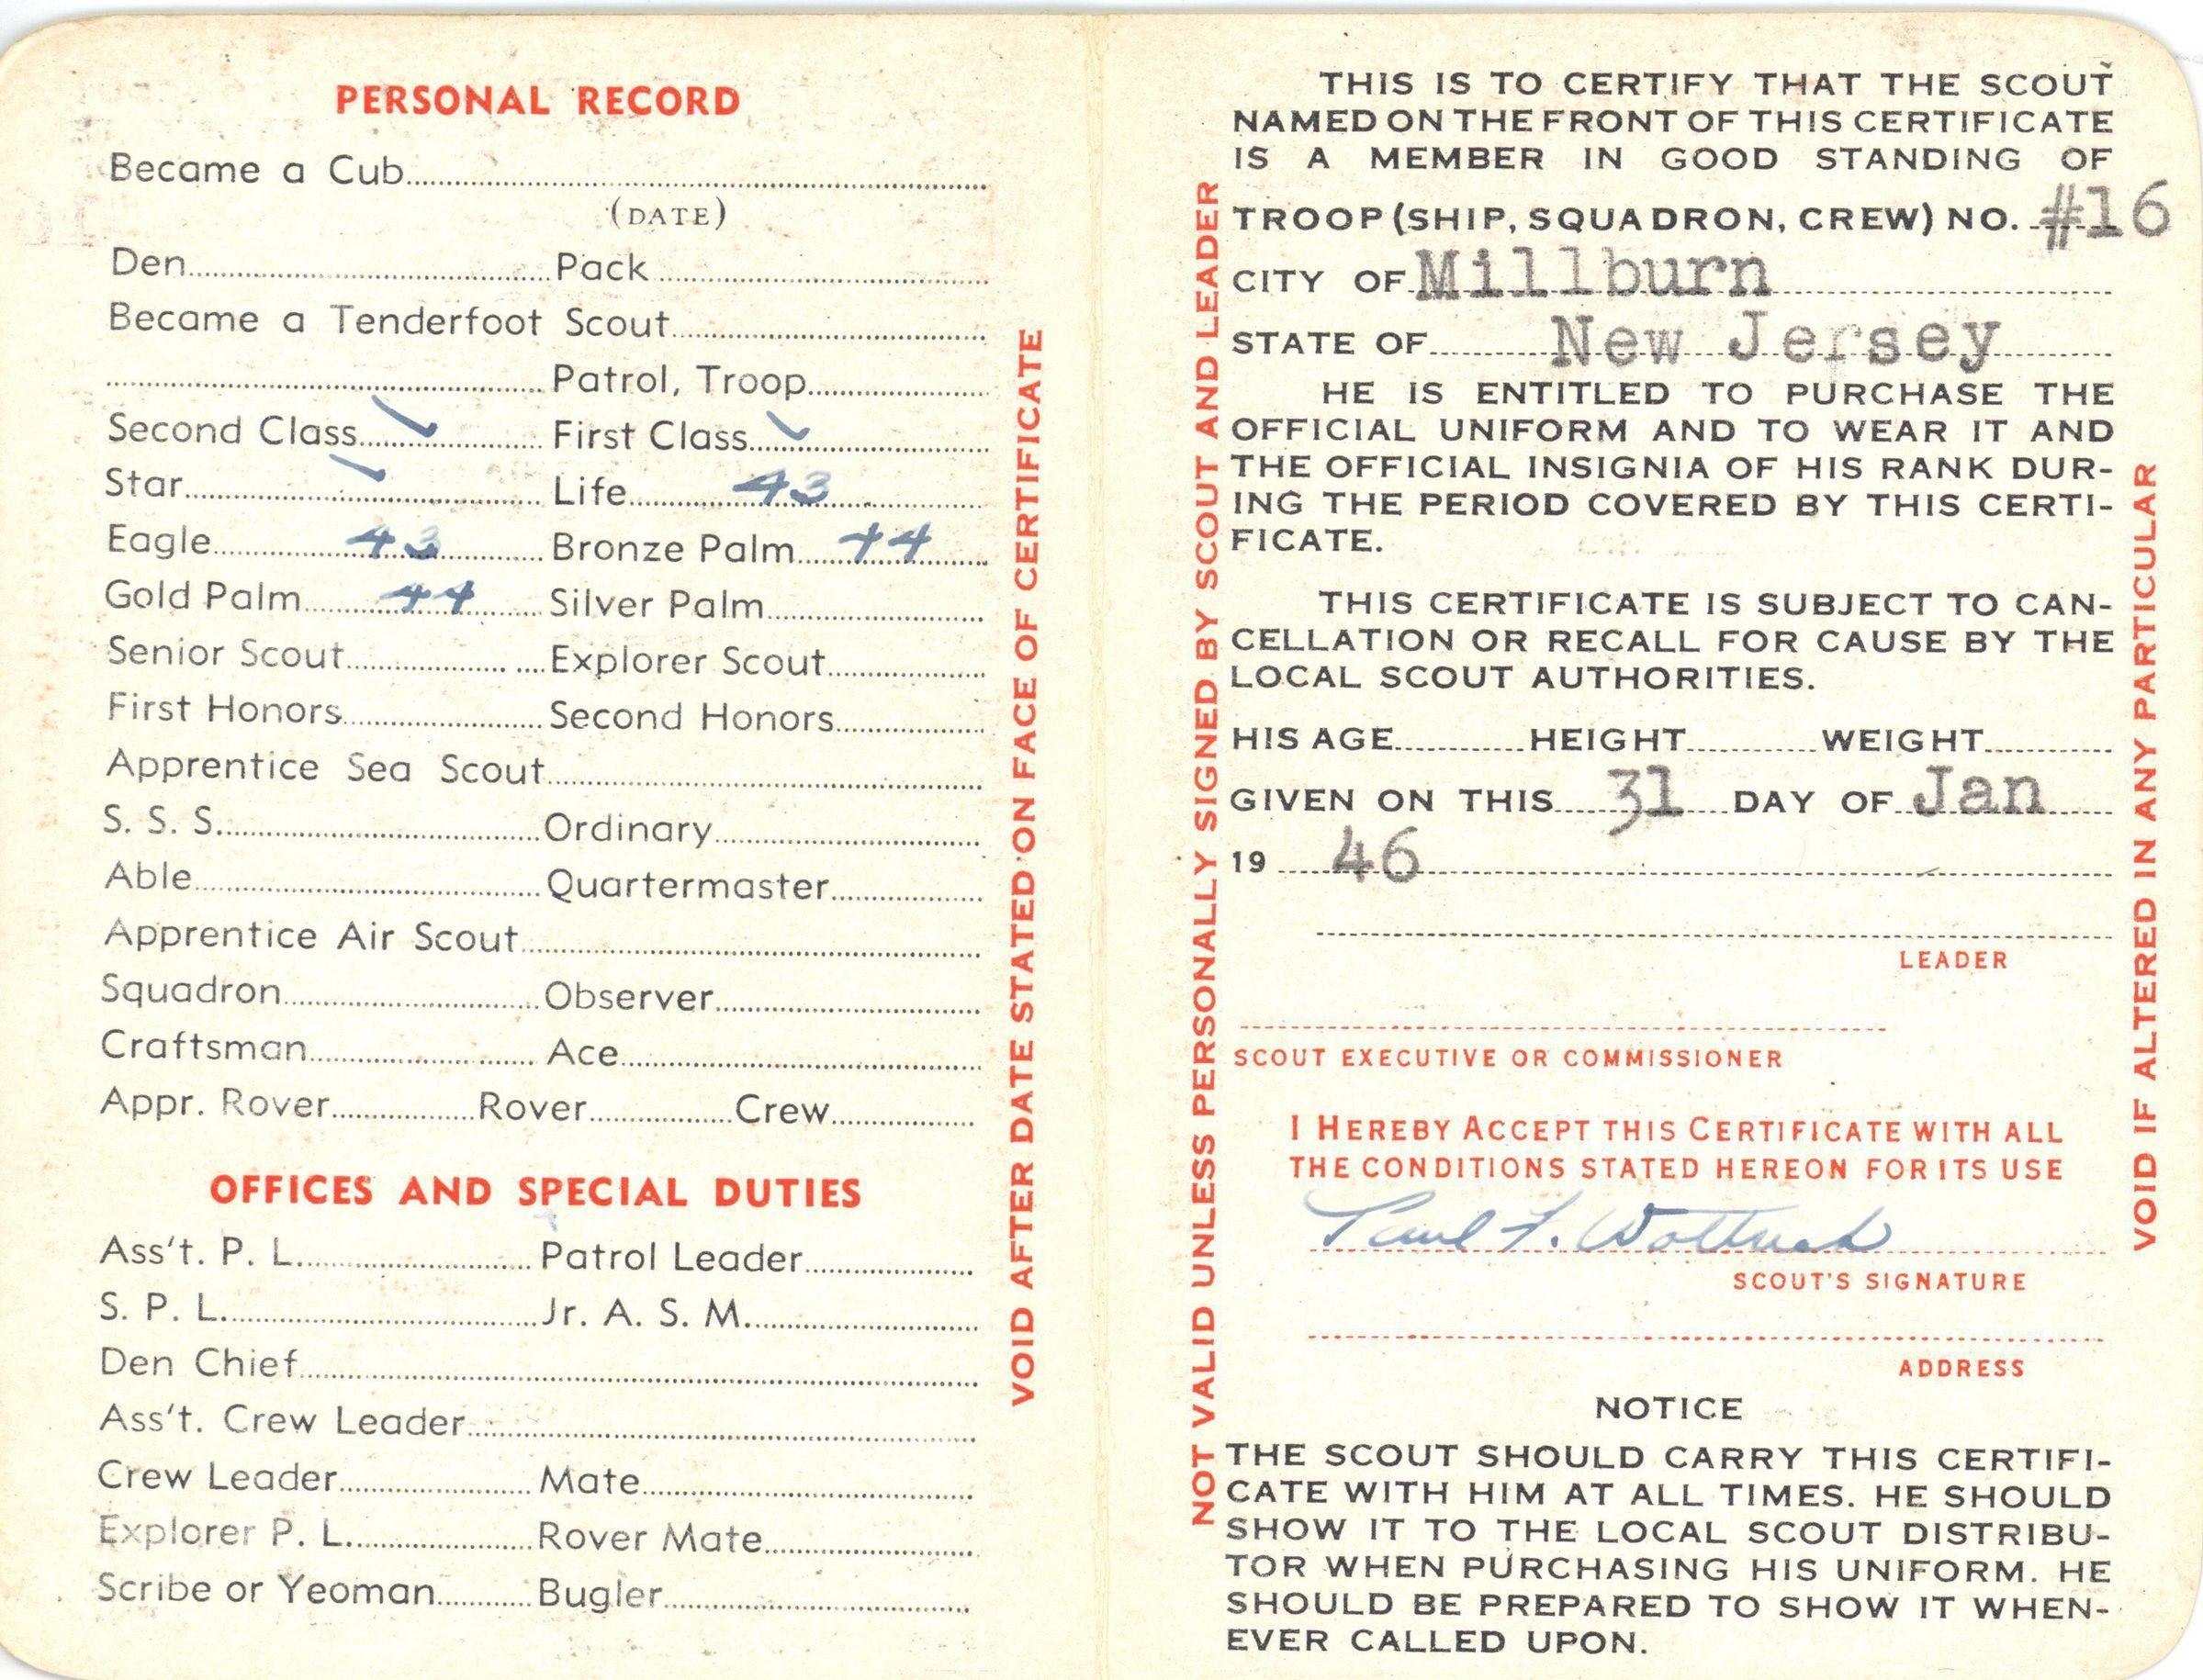 PERSONAL RECORD
Became a Cub
(DATE)
Den Pack
Became a Tenderfoot Scout
Patrol, Troop
Second Class ✓ First Class ✓
Star ✓ Life 43
Eagle 43 Bronze Palm 44
Gold Palm 44 Silver Palm
Senior Scout Explorer Scout
First Honors Second Honors
Apprentice Sea Scout
S. S. S. Ordinary
Able Quartermaster
Apprentice Air Scout
Squadron Observer
Craftsman Ace
Appr. Rover Rover Crew
OFFICES AND SPECIAL DUTIES
Ass't. P. L. Patrol Leader
S. P. L. Jr. A. S. M.
Den Chief
Ass't. Crew Leader
Crew Leader Mate
Explorer P. L. Rover Mate
Scribe or Yeoman Bugler
VOID AFTER DATE STATED ON FACE OF CERTIFICATE
NOT VALID UNLESS PERSONALLY SIGNED BY SCOUT AND LEADER
THIS IS TO CERTIFY THAT THE SCOUT
NAMED ON THE FRONT OF THIS CERTIFICATE
IS A MEMBER IN GOOD STANDING OF
TROOP (SHIP, SQUADRON, CREW) NO. #16
CITY OF Millburn
STATE OF New Jersey
HE IS ENTITLED TO PURCHASE THE
OFFICIAL UNIFORM AND TO WEAR IT AND
THE OFFICIAL INSIGNIA OF HIS RANK DUR-
ING THE PERIOD COVERED BY THIS CERTI-
FICATE.
THIS CERTIFICATE IS SUBJECT TO CAN-
CELLATION OR RECALL FOR CAUSE BY THE
LOCAL SCOUT AUTHORITIES.
HIS AGE HEIGHT WEIGHT
GIVEN ON THIS 31 DAY OF Jan
19 46
LEADER
SCOUT EXECUTIVE OR COMMISSIONER
I HEREBY ACCEPT THIS CERTIFICATE WITH ALL
THE CONDITIONS STATED HEREON FOR ITS USE
Paul F.
SCOUT'S SIGNATURE
ADDRESS
NOTICE
THE SCOUT SHOULD CARRY THIS CERTIFI-
CATE WITH HIM AT ALL TIMES. HE SHOULD
SHOW IT TO THE LOCAL SCOUT DISTRIBU-
TOR WHEN PURCHASING HIS UNIFORM. HE
SHOULD BE PREPARED TO SHOW IT WHEN-
EVER CALLED UPON.
VOID IF ALTERED IN ANY PARTICULAR